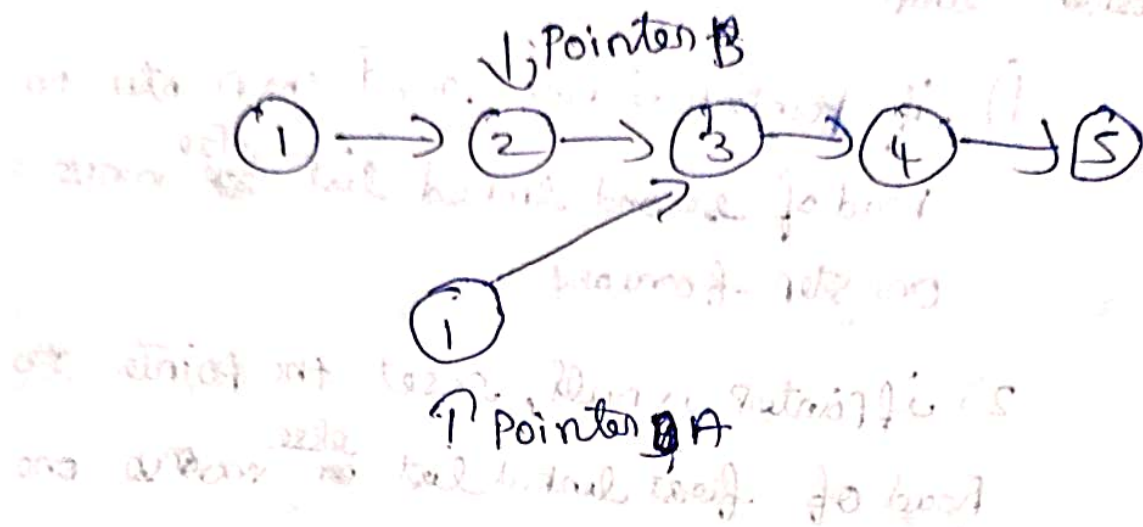 ↓ Pointer B
1 → 2 → 3 → 4 → 5
1
↑ Pointer A